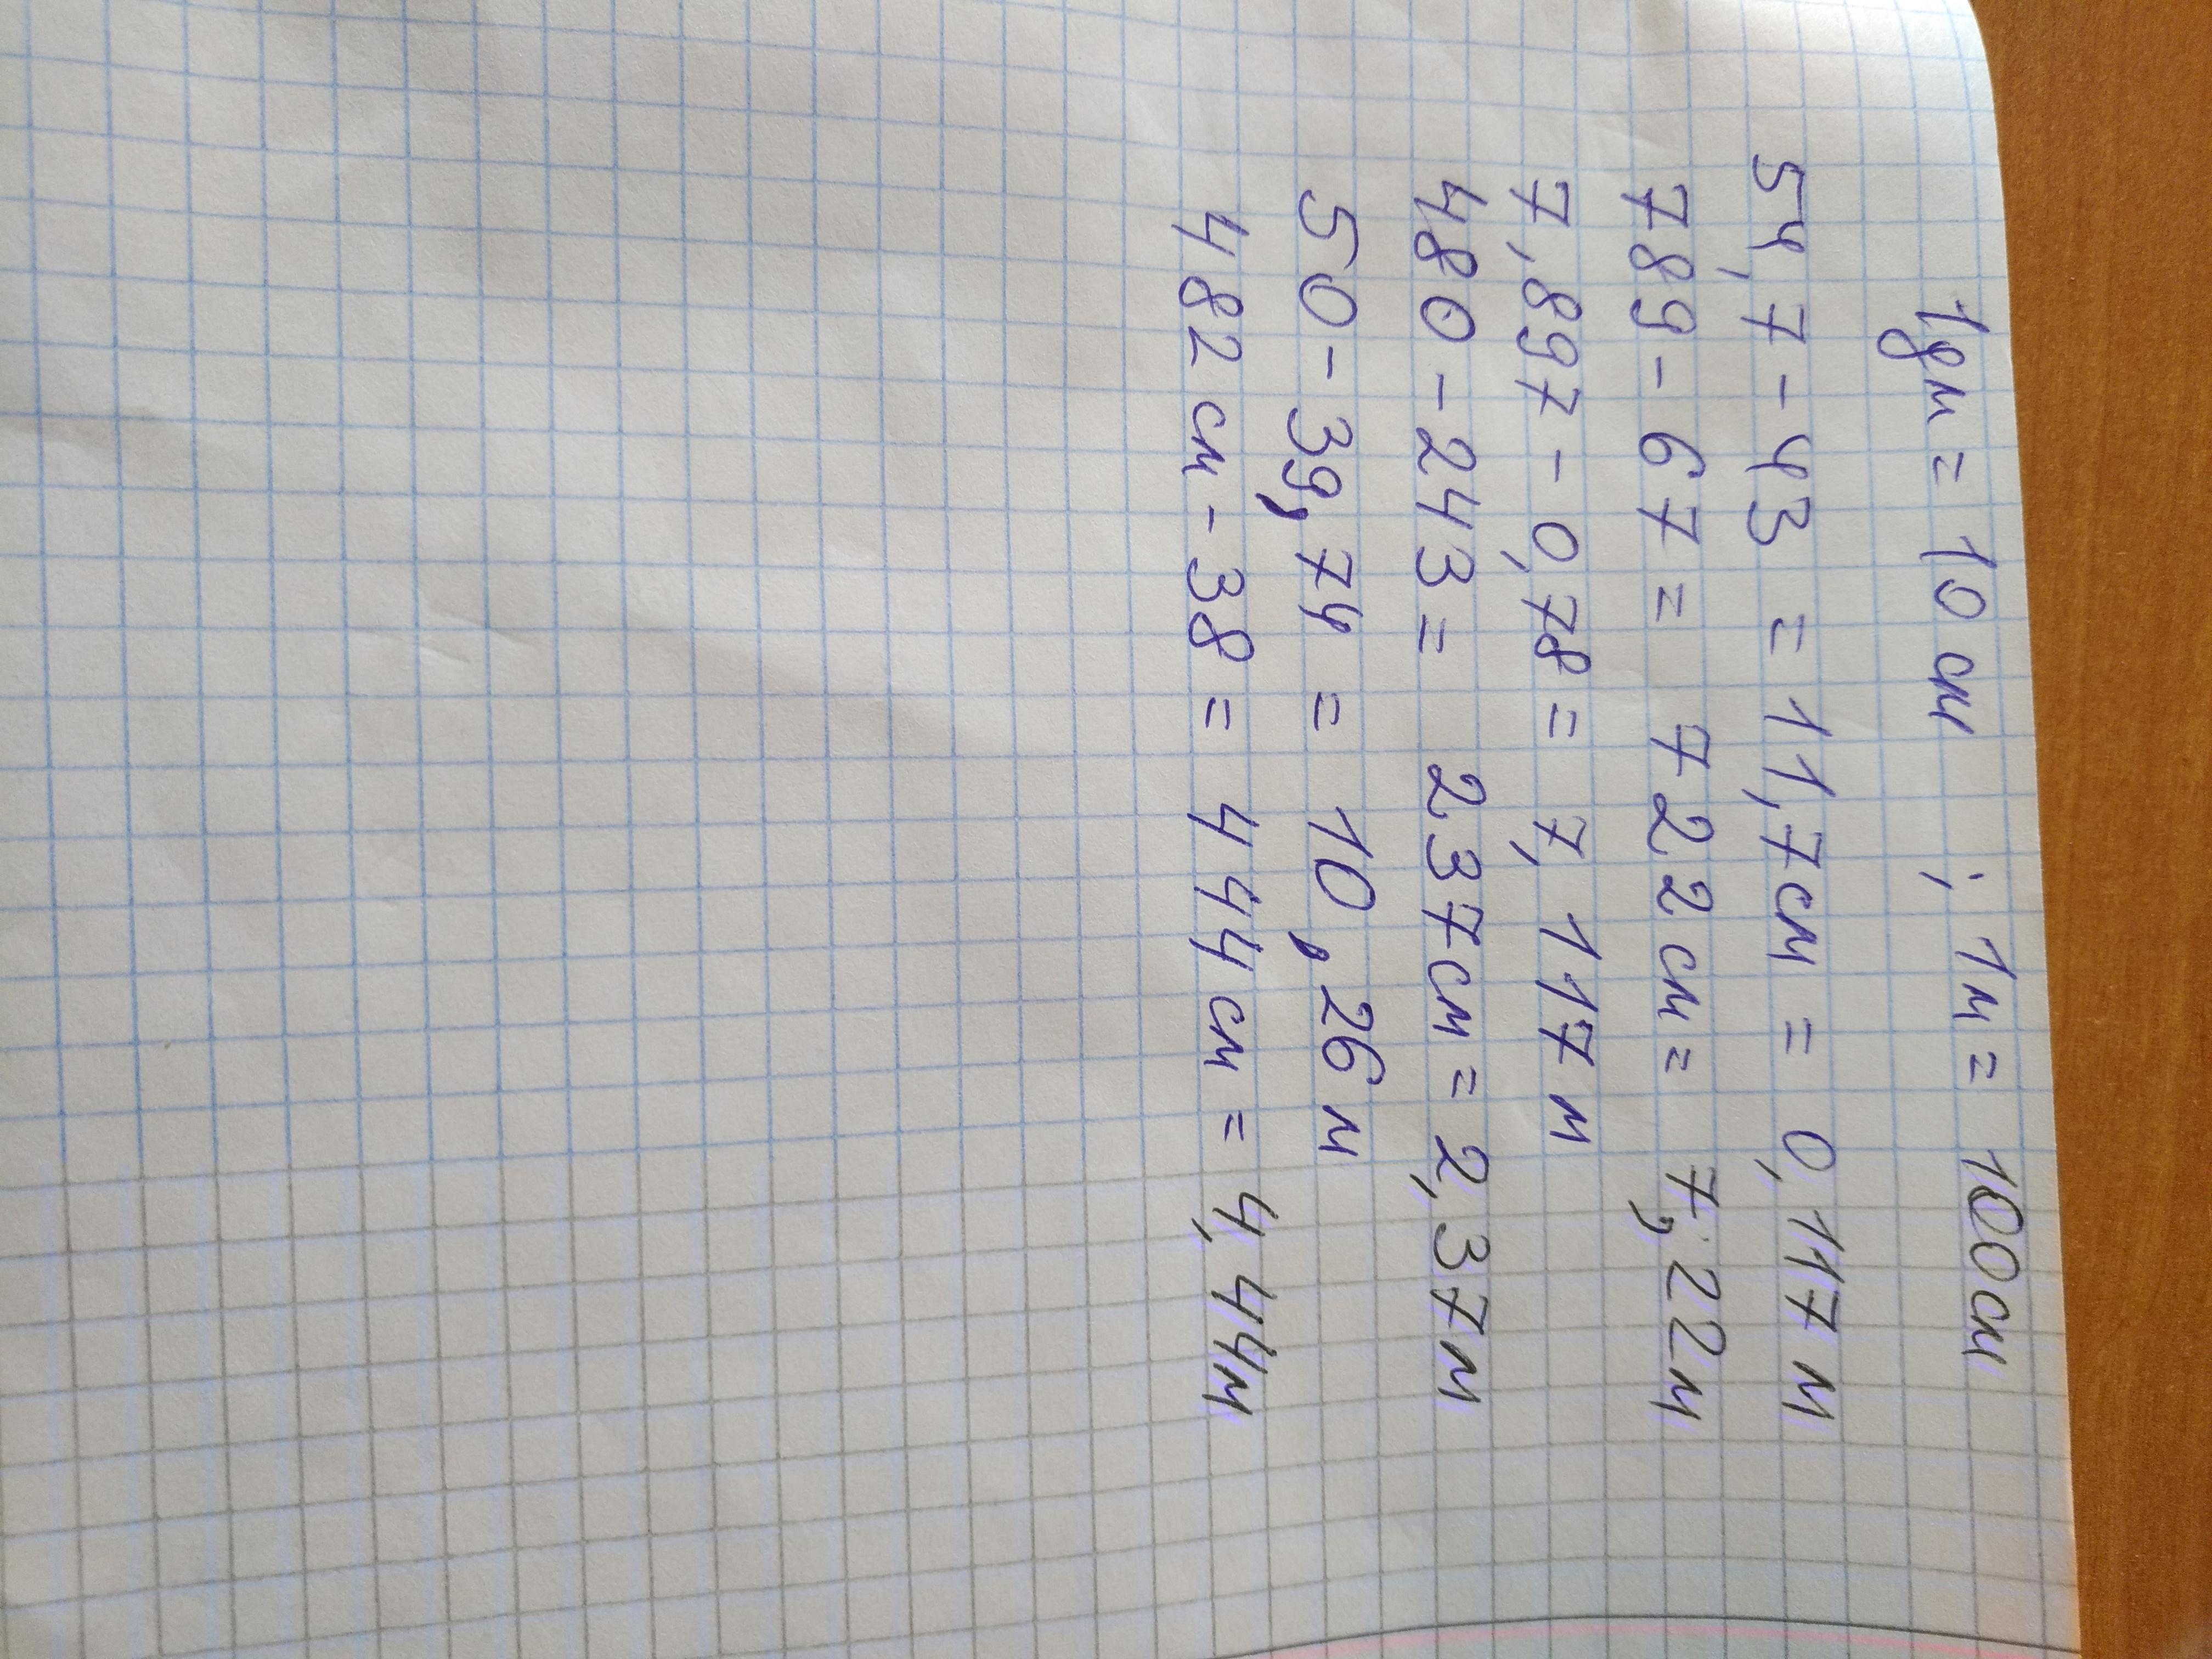 1дм = 10 см ; 1м = 100см
54,7 - 43 = 11,7см = 0,117м
789 - 67 = 722см = 7,22м
7,897 - 0,78 = 7,117м
480 - 243 = 237см = 2,37м
50 - 39,74 = 10,26м
482см - 38 = 444см = 4,44м